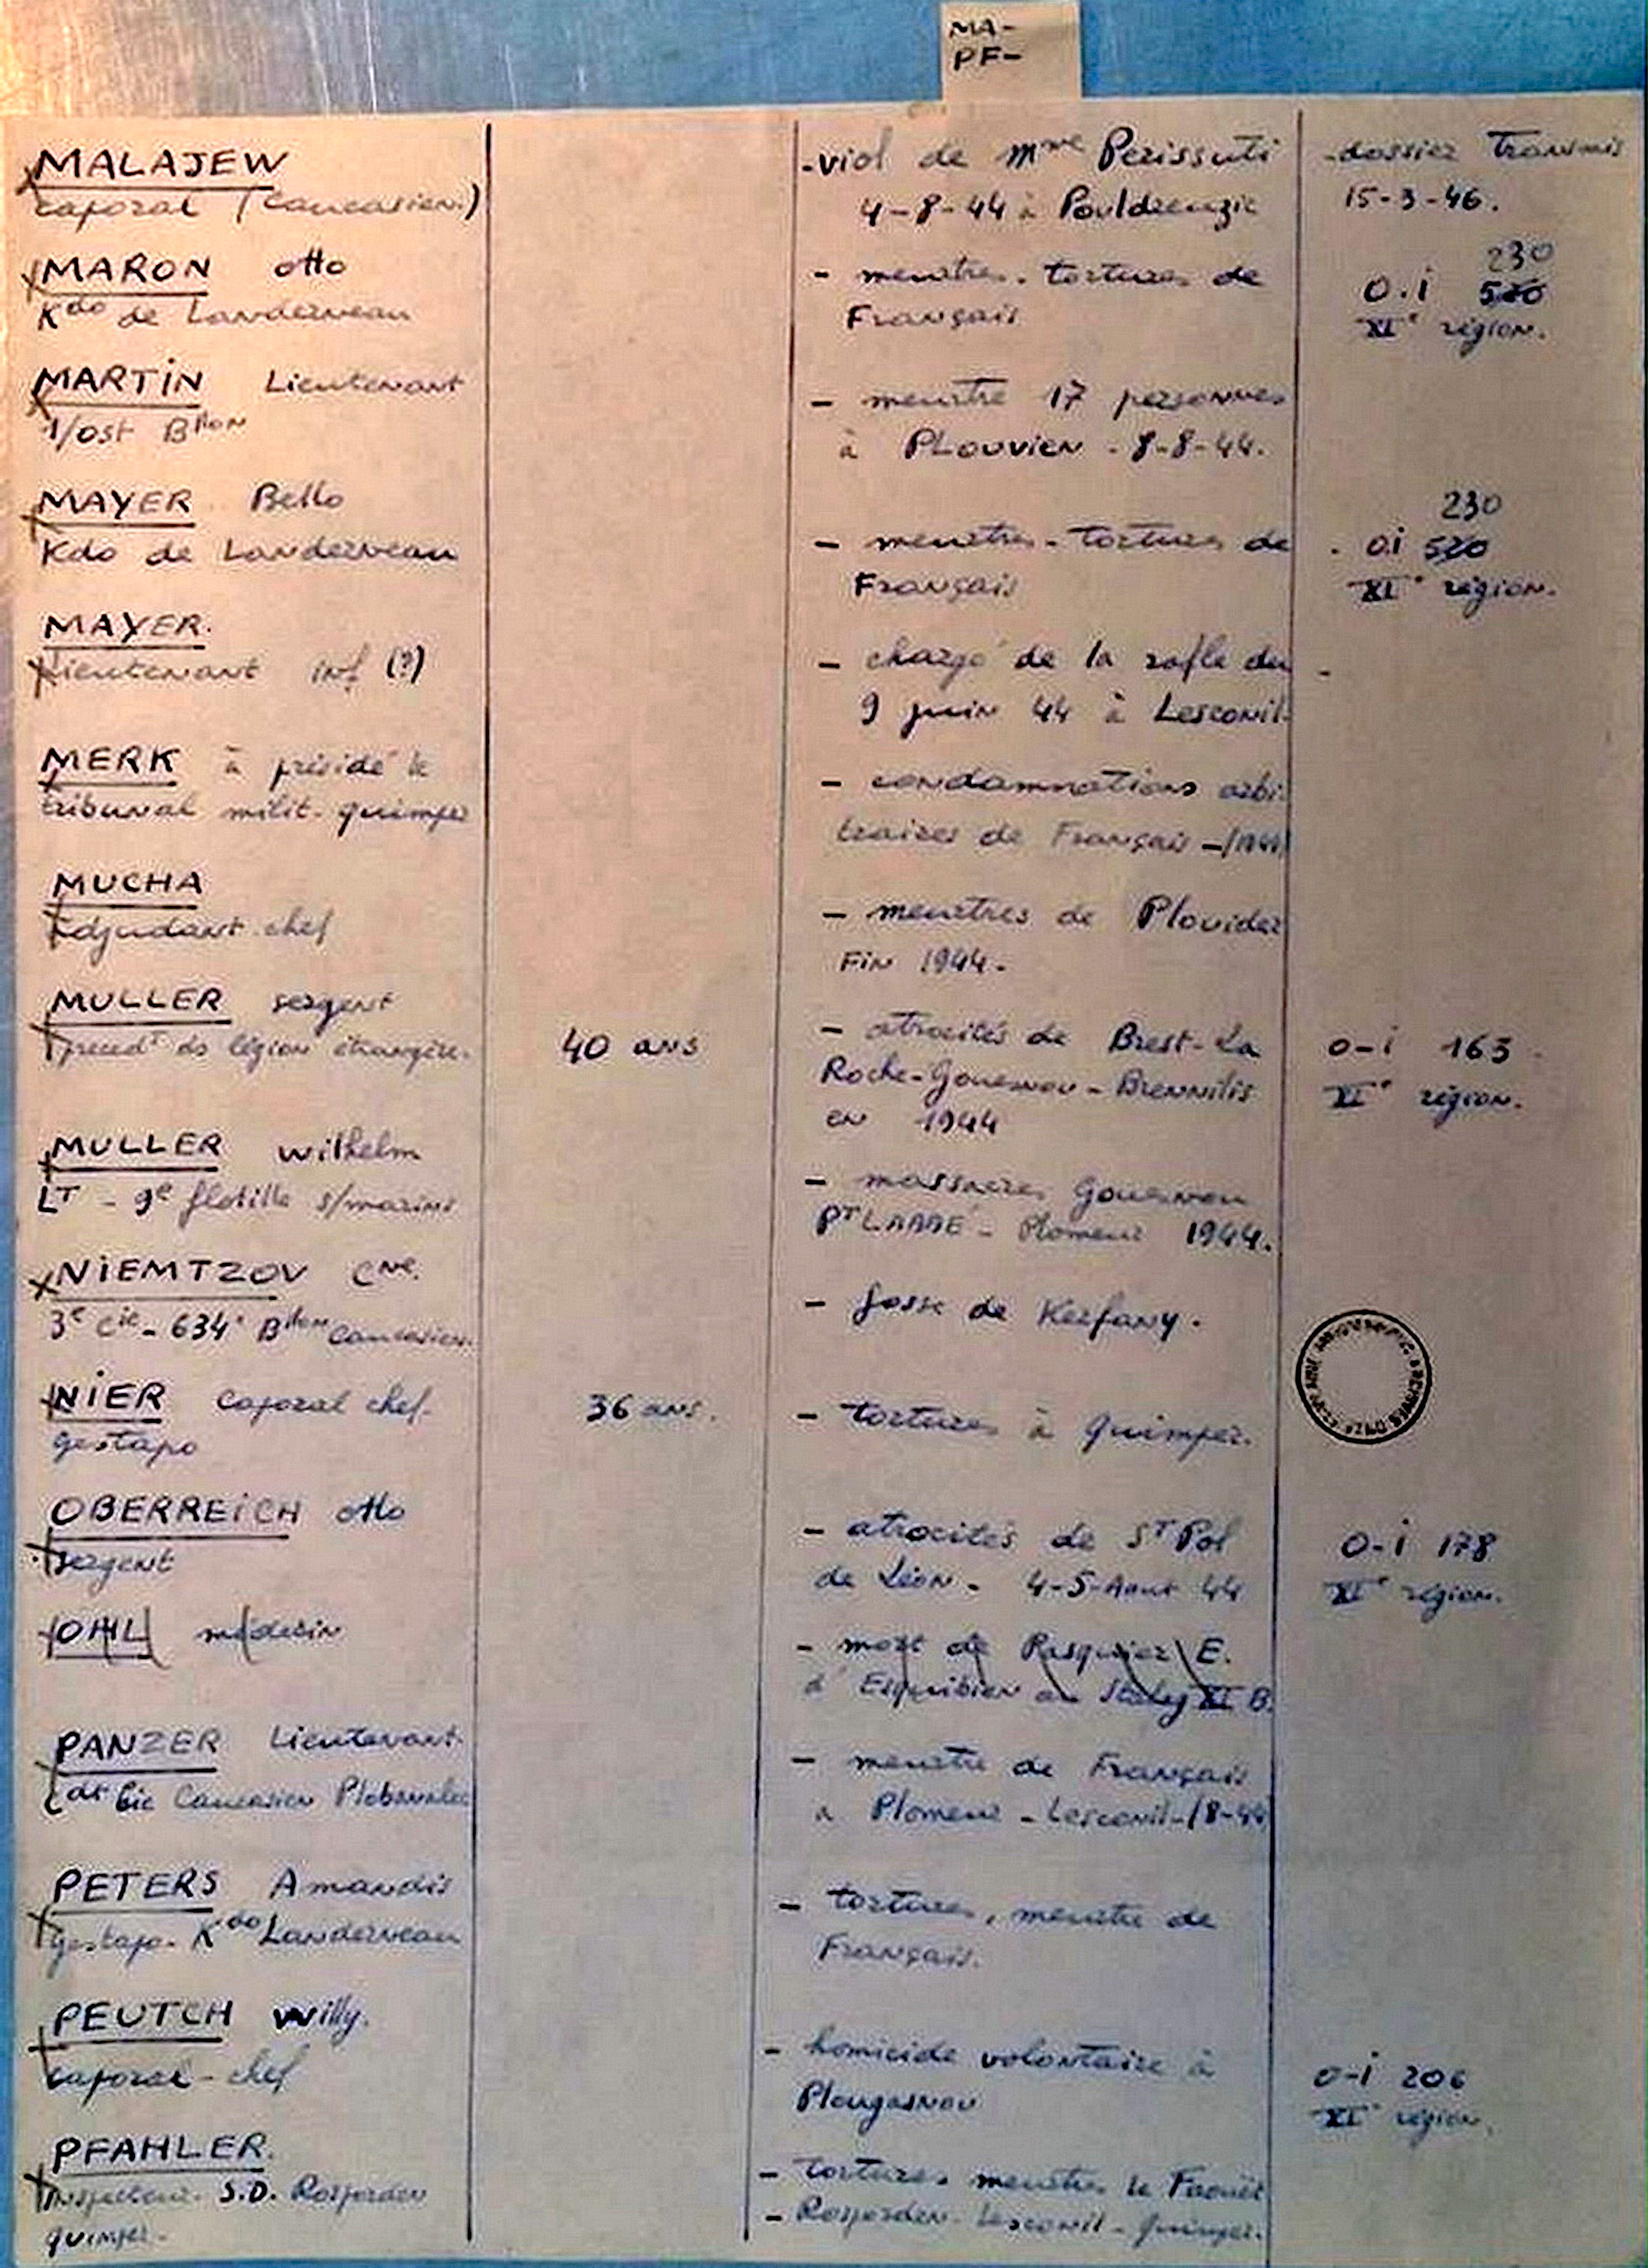 MA-
PF-
MALAJEW
caporal (caucasien.)
-viol de Mme Perissuti
4-8-44 à Pouldreuzic
-dossier Transmis
15-3-46.
MARON Otto
Kdo de Landerneau
- meurtres. tortures de
Français
230
O.i 520
XIe région.
MARTIN Lieutenant
1/ost Bllon
- meurtre 17 personnes
à PLOUVIEN - 8-8-44.
MAYER Bello
Kdo de Landerneau
- meurtres - tortures de
Français
230
. O.i 520
XIe région.
MAYER.
Lieutenant inf (?)
- chargé de la rafle du
9 juin 44 à Lesconil.
-
MERK à présidé le
tribunal milit. Quimper
- condamnations arbi-
traires de Français - (1944)
MUCHA
Adjudant chef
- meurtres de Plouider
Fin 1944.
MULLER sergent
précedt ds légion étrangère.
40 ans
- atrocités de Brest - La
Roche - Gouesnou - Brennilis
en 1944
O-i 163
XIe région.
MULLER Wilhelm
LT - 9e flotille s/marins
- massacres Gouesnou
PT LABBÉ - Plomeur 1944.
NIEMTZOV Cne.
3e Cie - 634e Bllon Caucasien.
- fosse de Kerfany.
NIER Caporal chef.
gestapo
36 ans.
- tortures à Quimper.
OBERREICH Otto
sergent
- atrocités de ST Pol
de Léon. 4-5-Aout 44
O-i 178
XIe région.
OHL médecin
- mort de Pasquier E.
d'Esquibien au Stalag XI B.
PANZER Lieutenant.
Cdt Cie Caucasien Plobannalec
- meurtre de Français
à Plomeur - Lesconil - (8-44)
PETERS Amandis
gestapo. Kdo Landerneau
- tortures, meurtre de
Français.
PEUTCH Willy.
caporal-chef
- homicide volontaire à
Plougasnou
O-i 206
XIe région.
PFAHLER.
Inspecteur. S.D. Rosporden
Quimper.
- tortures. meurtres le Faouët
- Rosporden - Lesconil - Quimper.